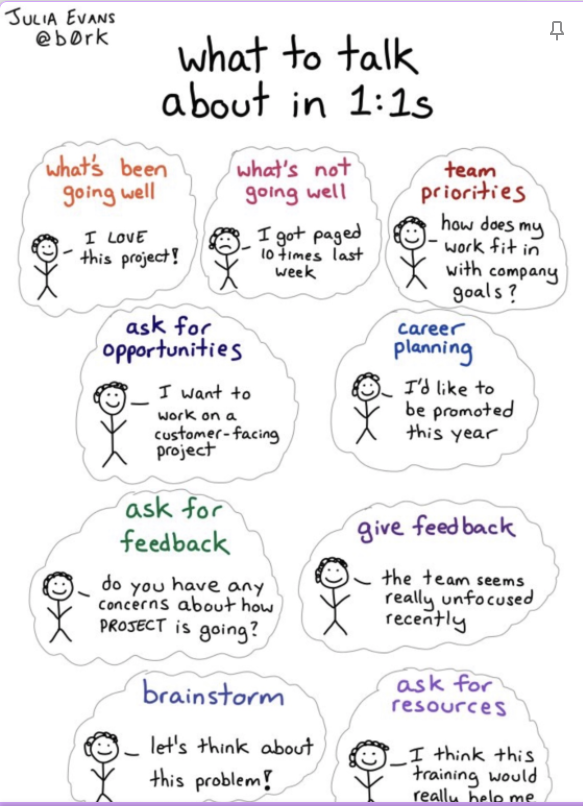 JULIA EVANS
@b0rk
what to talk
about in 1:1s
what's been
going well
I LOVE
this project!
what's not
going well
I got paged
10 times last
week
team
priorities
how does my
work fit in
with company
goals?
ask for
opportunities
I want to
work on a
customer-facing
project
career
planning
I'd like to
be promoted
this year
ask for
feedback
do you have any
concerns about how
PROJECT is going?
give feedback
the team seems
really unfocused
recently
brainstorm
let's think about
this problem!
ask for
resources
I think this
training would
really help me